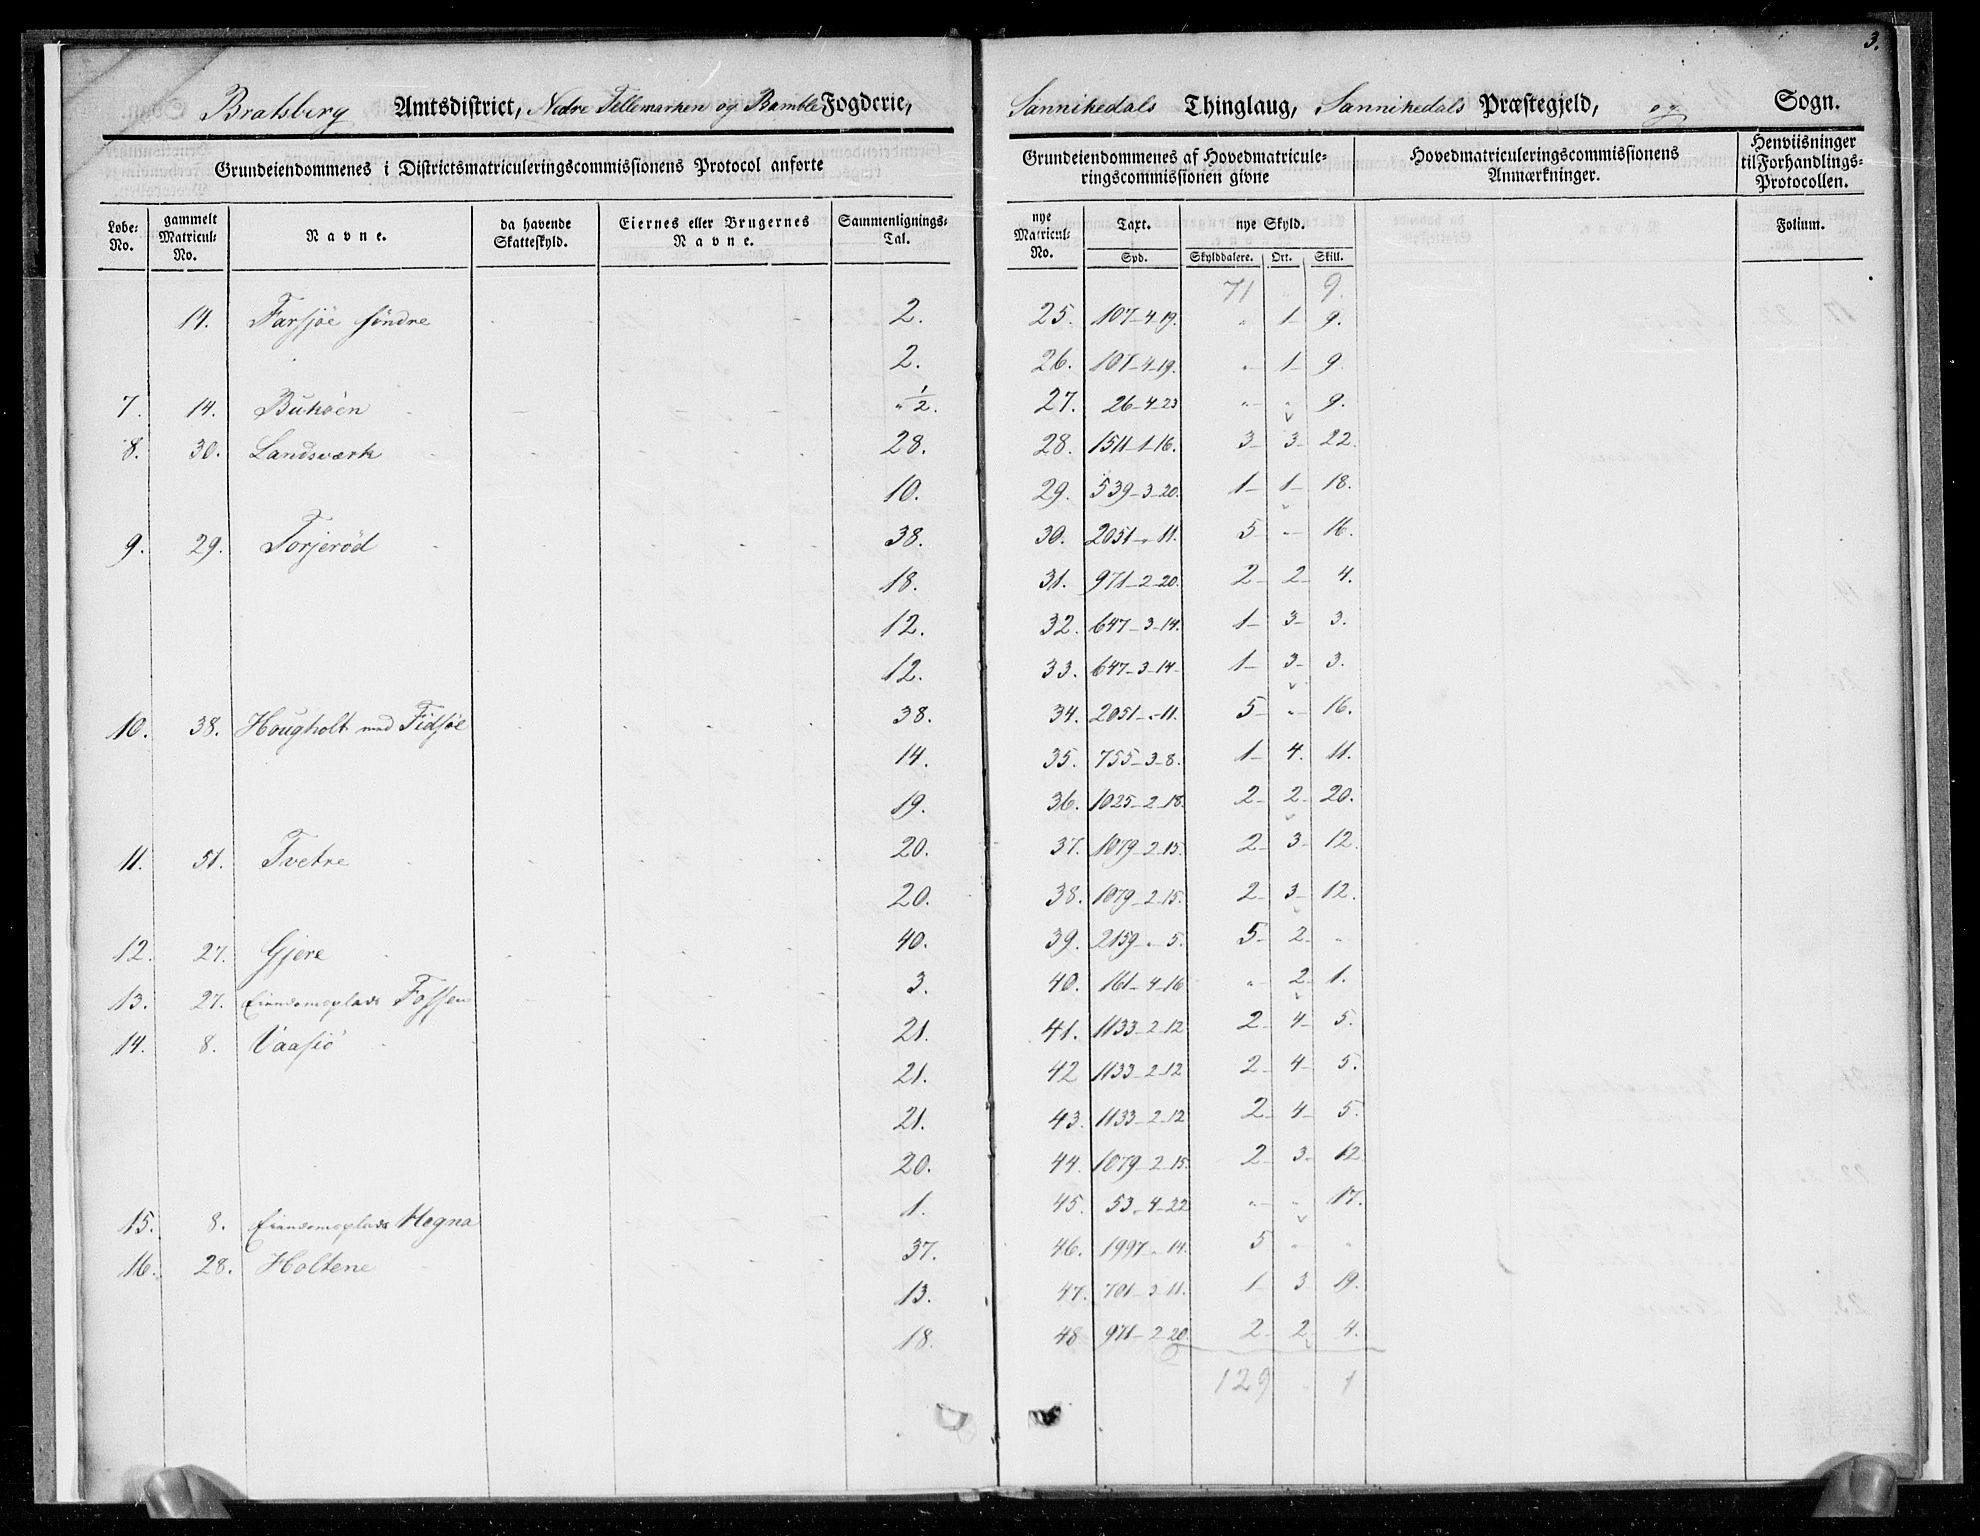 3.
Bratsberg Amtsdistrict, Nedre Tellemarken og Bamble Fogderie, Sannikedals Thinglaug, Sannikedals Præstegjeld, og Sogn.
Grundeiendommenes i Districtsmatriculeringscommissionens Protocol anforte
Grundeiendommenes af Hovedmatricule=
ringscommissionen givne
Hovedmatriculeringscommissionens
Anmærkninger.
Henviisninger
til Forhandlings=
Protocollen.
Løbe=
No.
gammelt
Matricul=
No.
Navne.
da havende
Skatteskyld.
Eiernes eller Brugernes
Navne.
Sammenlignings=
Tal.
nye
Matricul=
No.
Taxt.
nye Skyld.
Folium.
Spd. Skylddalere. Ort. Skill.
71 " 9.
14. Farsjøe søndre 2. 25. 107-4-19. " 1- 9.
2. 26. 107-4-19. " 1- 9.
7. 14. Buhøen " 1/2. 27. 26-4-23 " " 9.
8. 30. Landsværk 28. 28. 1511-1-16. 3- 3- 22.
10. 29. 539-3-20. 1- 1- 18.
9. 29. Torjerød 38. 30. 2051-"-11. 5- " 16.
18. 31. 971-2-20. 2- 2- 4.
12. 32. 647-3-14. 1- 3- 3.
12. 33. 647-3-14- 1- 3- 3.
10. 38. Hougholt med Fidsøe 38. 34. 2051-"-11. 5- " 16.
14. 35. 755-3-8. 1- 4. 11.
19. 36. 1025-2-18. 2- 2- 20.
11. 51. Tvetre 20. 37. 1079-2-15. 2- 3- 12.
20. 38. 1079-2-15. 2- 3- 12.
12. 27. Gjere 40. 39. 2159-"-5. 5- 2- "
13. 27. Eiendomsplads Fossen 3. 40. 161-4-16 " 2- 1.
14. 8. Vaasiø 21. 41. 1133-2-12 2- 4- 5.
21. 42 1133-2-12 2- 4- 5.
21. 43. 1133-2-12 2- 4- 5.
20. 44. 1079-2-15. 2- 3- 12.
1. 45. 53-4-22 " " 17.
15. 8. Eiendomsplads Hegna
37. 46. 1997-"-14. 5 " "
16. 28. Holtene
13. 47. 701-3-11. 1- 3 19.
18. 48 971-2-20. 2- 2- 4.
129 " 1